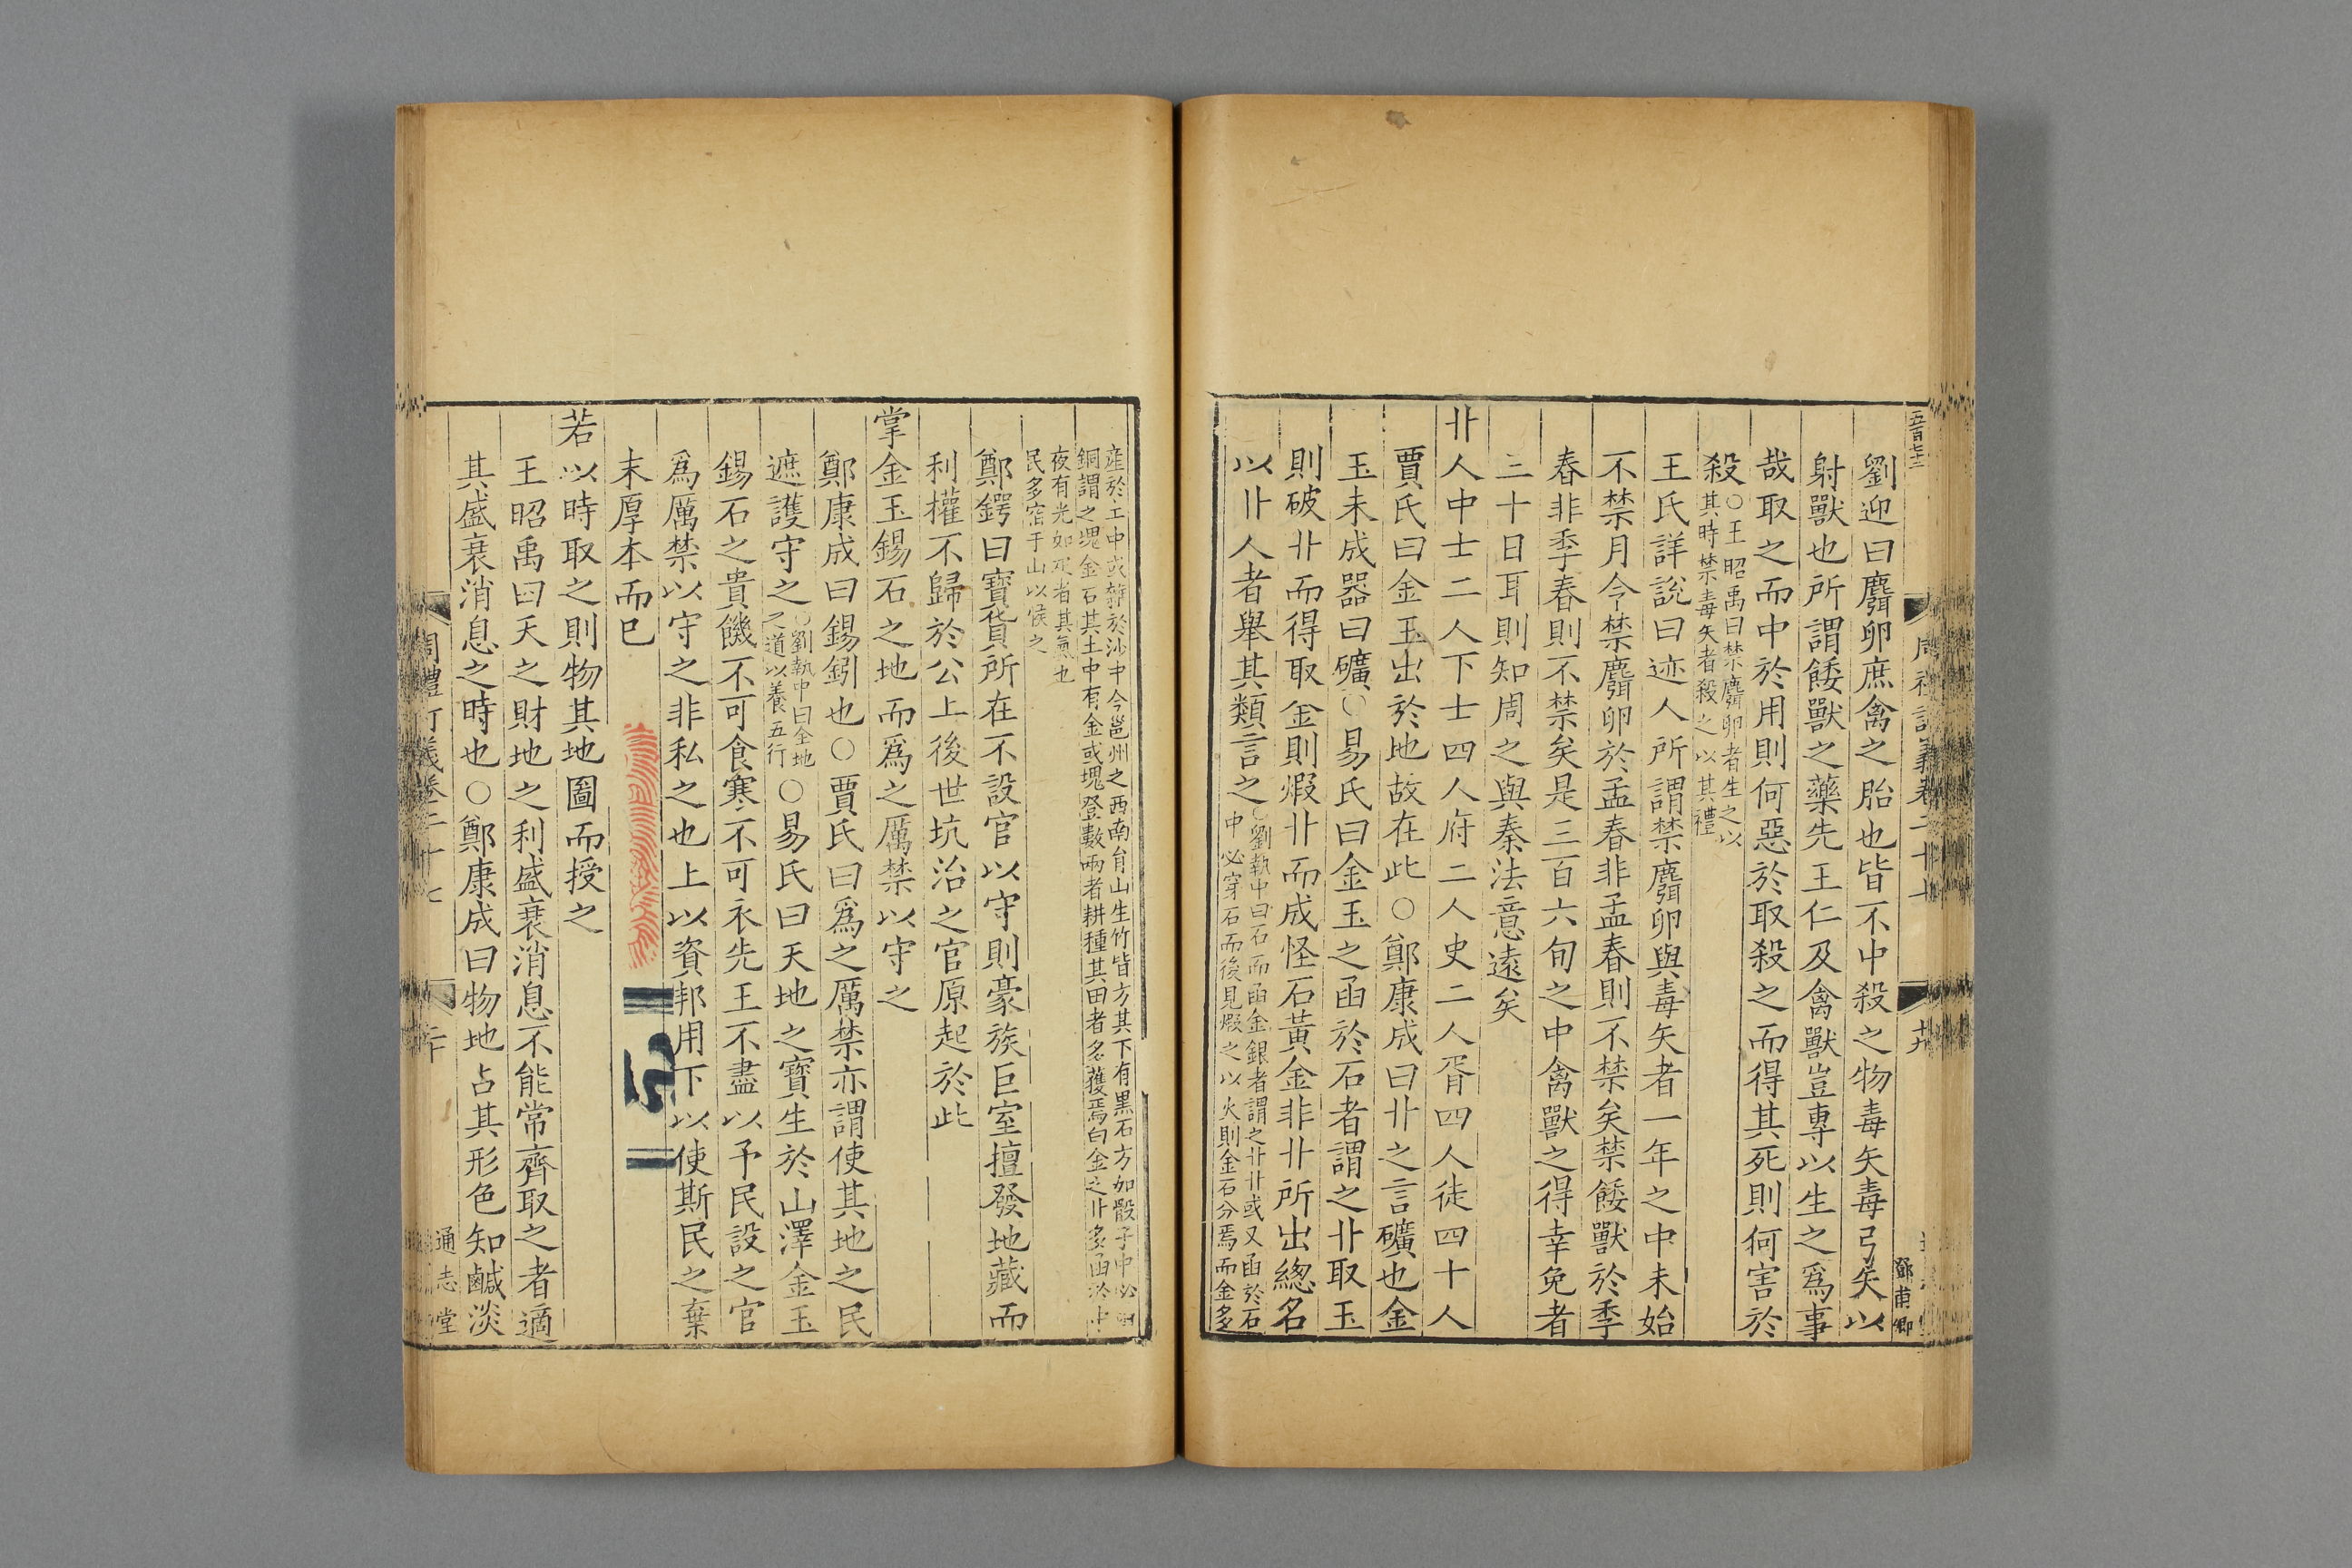 五百七十二
周禮訂義卷二十七
十九
鄧甫卿
劉迎曰麛卵庶禽之胎也皆不中殺之物毒矢毒弓矢以
射獸也所謂餧獸之藥先王仁及禽獸豈專以生之爲事
哉取之而中於用則何惡於取殺之而得其死則何害於
殺○王昭禹曰禁麛卵者生之以
其時禁毒矢者殺之以其禮
王氏詳說曰迹人所謂禁麛卵與毒矢者一年之中未始
不禁月令禁麛卵於孟春非孟春則不禁矣禁餧獸於季
春非季春則不禁矣是三百六旬之中禽獸之得幸免者
三十日耳則知周之與秦法意遠矣
卝人中士二人下士四人府二人史二人胥四人徒四十人
賈氏曰金玉出於地故在此○鄭康成曰卝之言礦也金
玉未成器曰礦○易氏曰金玉之函於石者謂之卝取玉
則破卝而得取金則煆卝而成怪石黃金非卝所出總名
以卝人者舉其類言之○劉執中曰石而函金銀者謂之卝卝或又函於石
中必穿石而後見煆之以火則金石分焉而金多
產於土中或雜於沙中今邕州之西南自山生竹皆方其下有黑石方如骰子中必
銅謂之塊金石其土中有金或塊登數兩者耕種其田者多獲焉白金之卝多函於
夜有光如火者其氣也
民多窑于山以候之
鄭鍔曰寶貨所在不設官以守則豪族巨室擅發地藏而
利權不歸於公上後世坑治之官原起於此
掌金玉錫石之地而爲之厲禁以守之
鄭康成曰錫鈏也○賈氏曰爲之厲禁亦謂使其地之民
遮護守之○劉執中曰全地
之道以養五行○易氏曰天地之寶生於山澤金玉
錫石之貴饑不可食寒不可衣先王不盡以予民設之官
爲厲禁以守之非私之也上以資邦用下以使斯民之棄
末厚本而已
若以時取之則物其地圖而授之
王昭禹曰天之財地之利盛衰消息不能常齊取之者適
其盛衰消息之時也○鄭康成曰物地占其形色知鹹淡
周禮訂義卷二十七
二十
通志堂